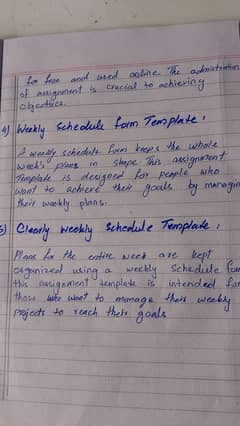 for free and used online. The administration
of assignment is crucial to achieving
objectives.
4) Weekly Schedule form Template:
A weekly schedule form keeps the whole
week's plans in shape. This assignment
Template is designed for people who
want to achieve their goals by managin
their weekly plans.
5) Clearly weekly schedule Template:
Plans for the entire week are kept
organized using a weekly schedule for
this assignment template is intended for
those who want to manage their weekly
projects to reach their goals